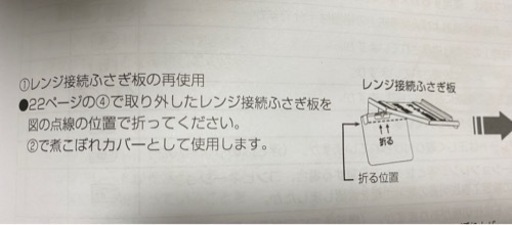 ①レンジ接続ふさぎ板の再使用
●22ページの④で取り外したレンジ接続ふさぎ板を
図の点線の位置で折ってください。
②で煮こぼれカバーとして使用します。
レンジ接続ふさぎ板
折る
折る位置